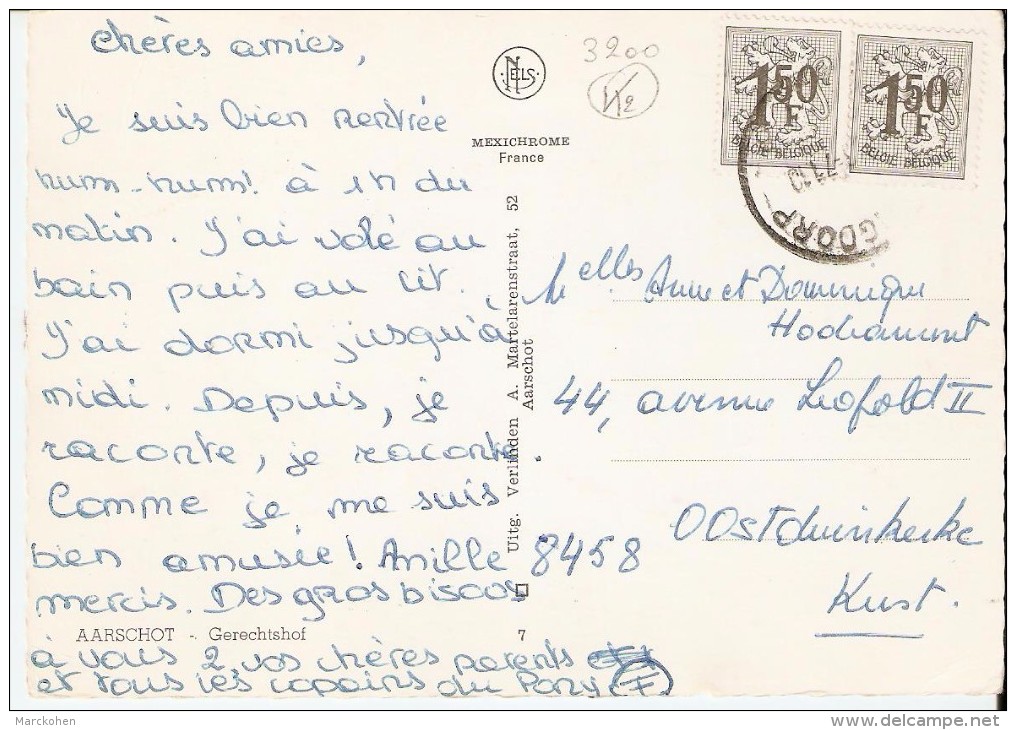 chères amies,
Je suis bien rentrée
hum-hum! à 1h du
matin. J'ai volé au
bain puis au lit.
J'ai dormi jusqu'à
midi. Depuis, je
raconte, je raconte.
Comme je me suis
bien amusée! mille
mercis. Des gros bisous
AARSCHOT - Gerechtshof
7
à vous 2, vos chères parents
et tous les copains du Pony
NELS
MEXICHROME
France
Uitg. Verlinden A. Martelarenstraat, 52
Aarschot
3200
1 50 F
BELGIE BELGIQUE
1 50 F
BELGIE BELGIQUE
GDORP
Melles Anne et Dominique
44, avenue Léopold II
8458
Oostduinkerke
Kust.
Marckohen
delcampe.net